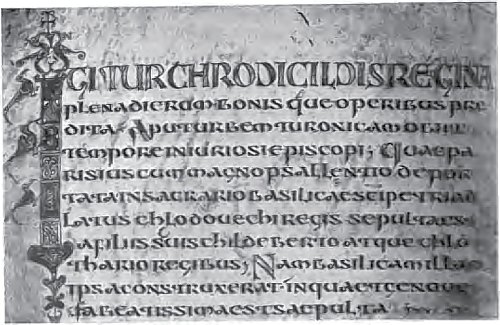 IGITUR CHRODICILDIS REGINA
plena dierum bonis que operibus pre
dita Aput urbem turonicam obiit
tempore iniuriosi episcopi; Quae pa
risius cum magno psallentio depor
tata in sacrario basilicae sci petri ad
latus chlodouechi regis sepulta est
a filiis suis childeberto atque chlo
thario regibus; Nam basilicam illam
ipsa construxerat in qua et genuue
fa beatissima est saepulta